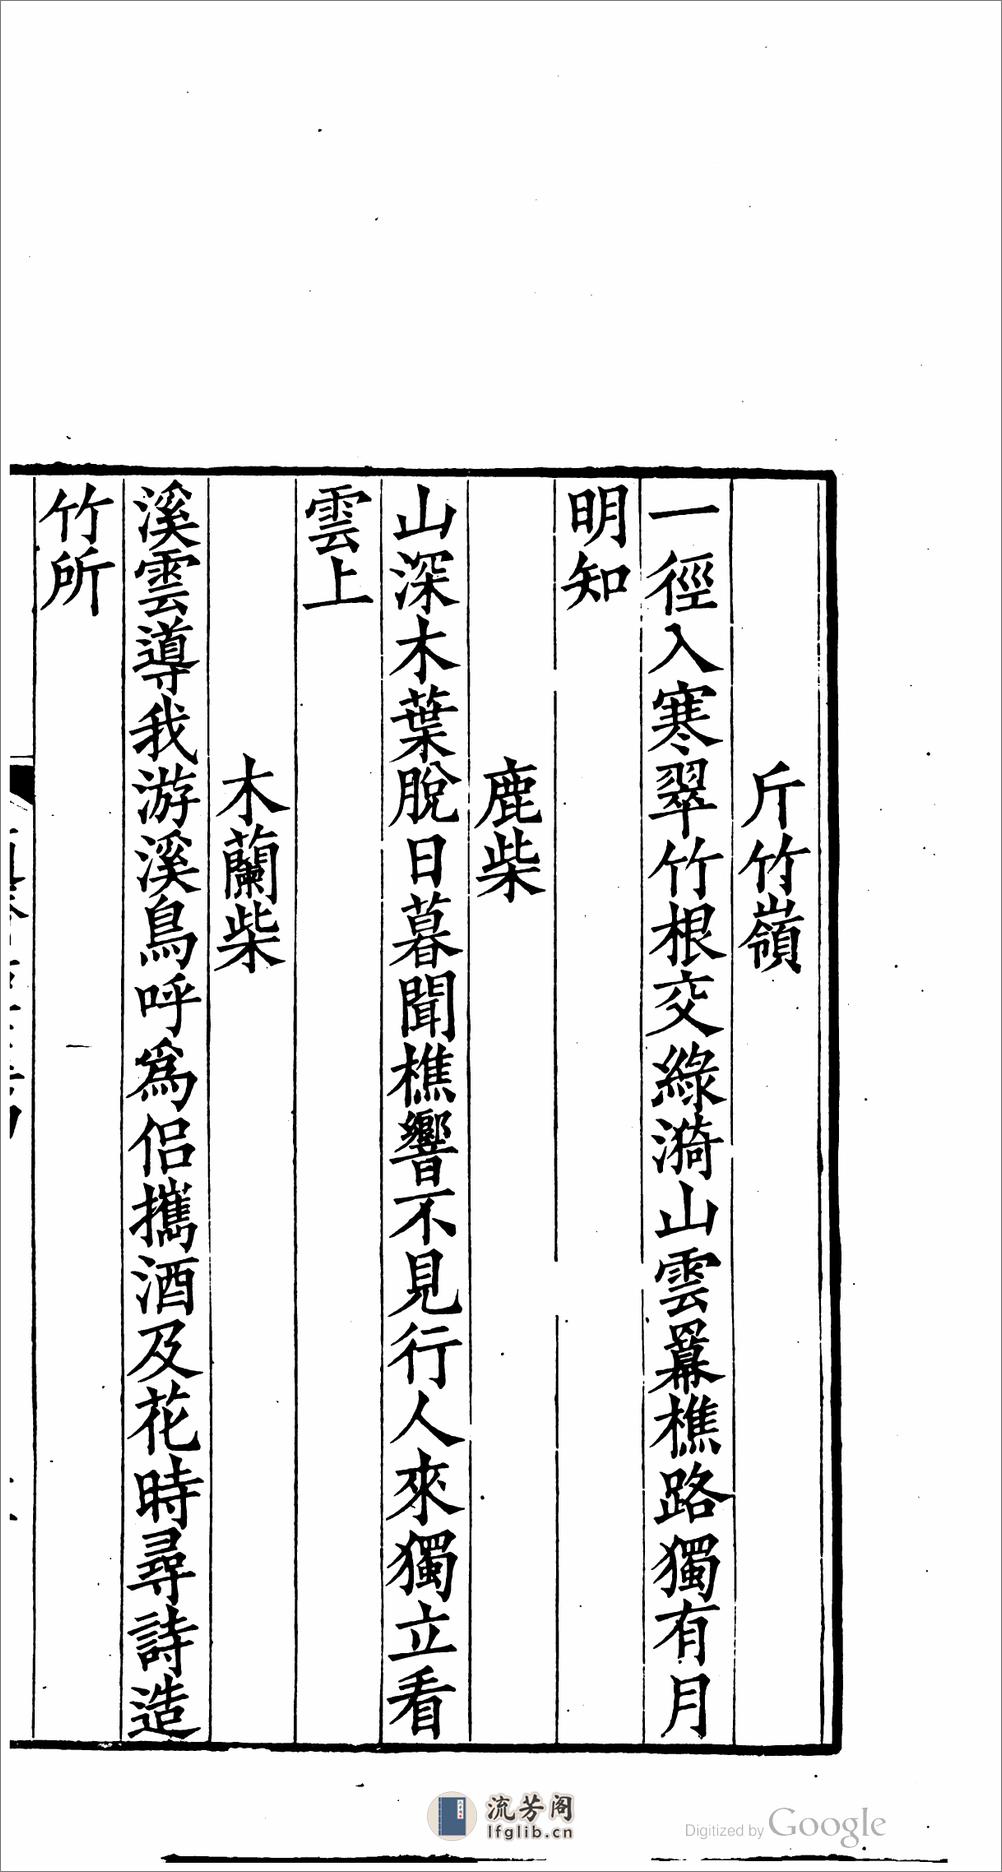 斤竹嶺
一徑入寒翠竹根交綠漪山雲羃樵路獨有月
明知
鹿柴
山深木葉脫日暮聞樵響不見行人來獨立看
雲上
木蘭柴
溪雲導我游溪鳥呼爲侶攜酒及花時尋詩造
竹所
流芳阁
lfglib.cn
Digitized by Google